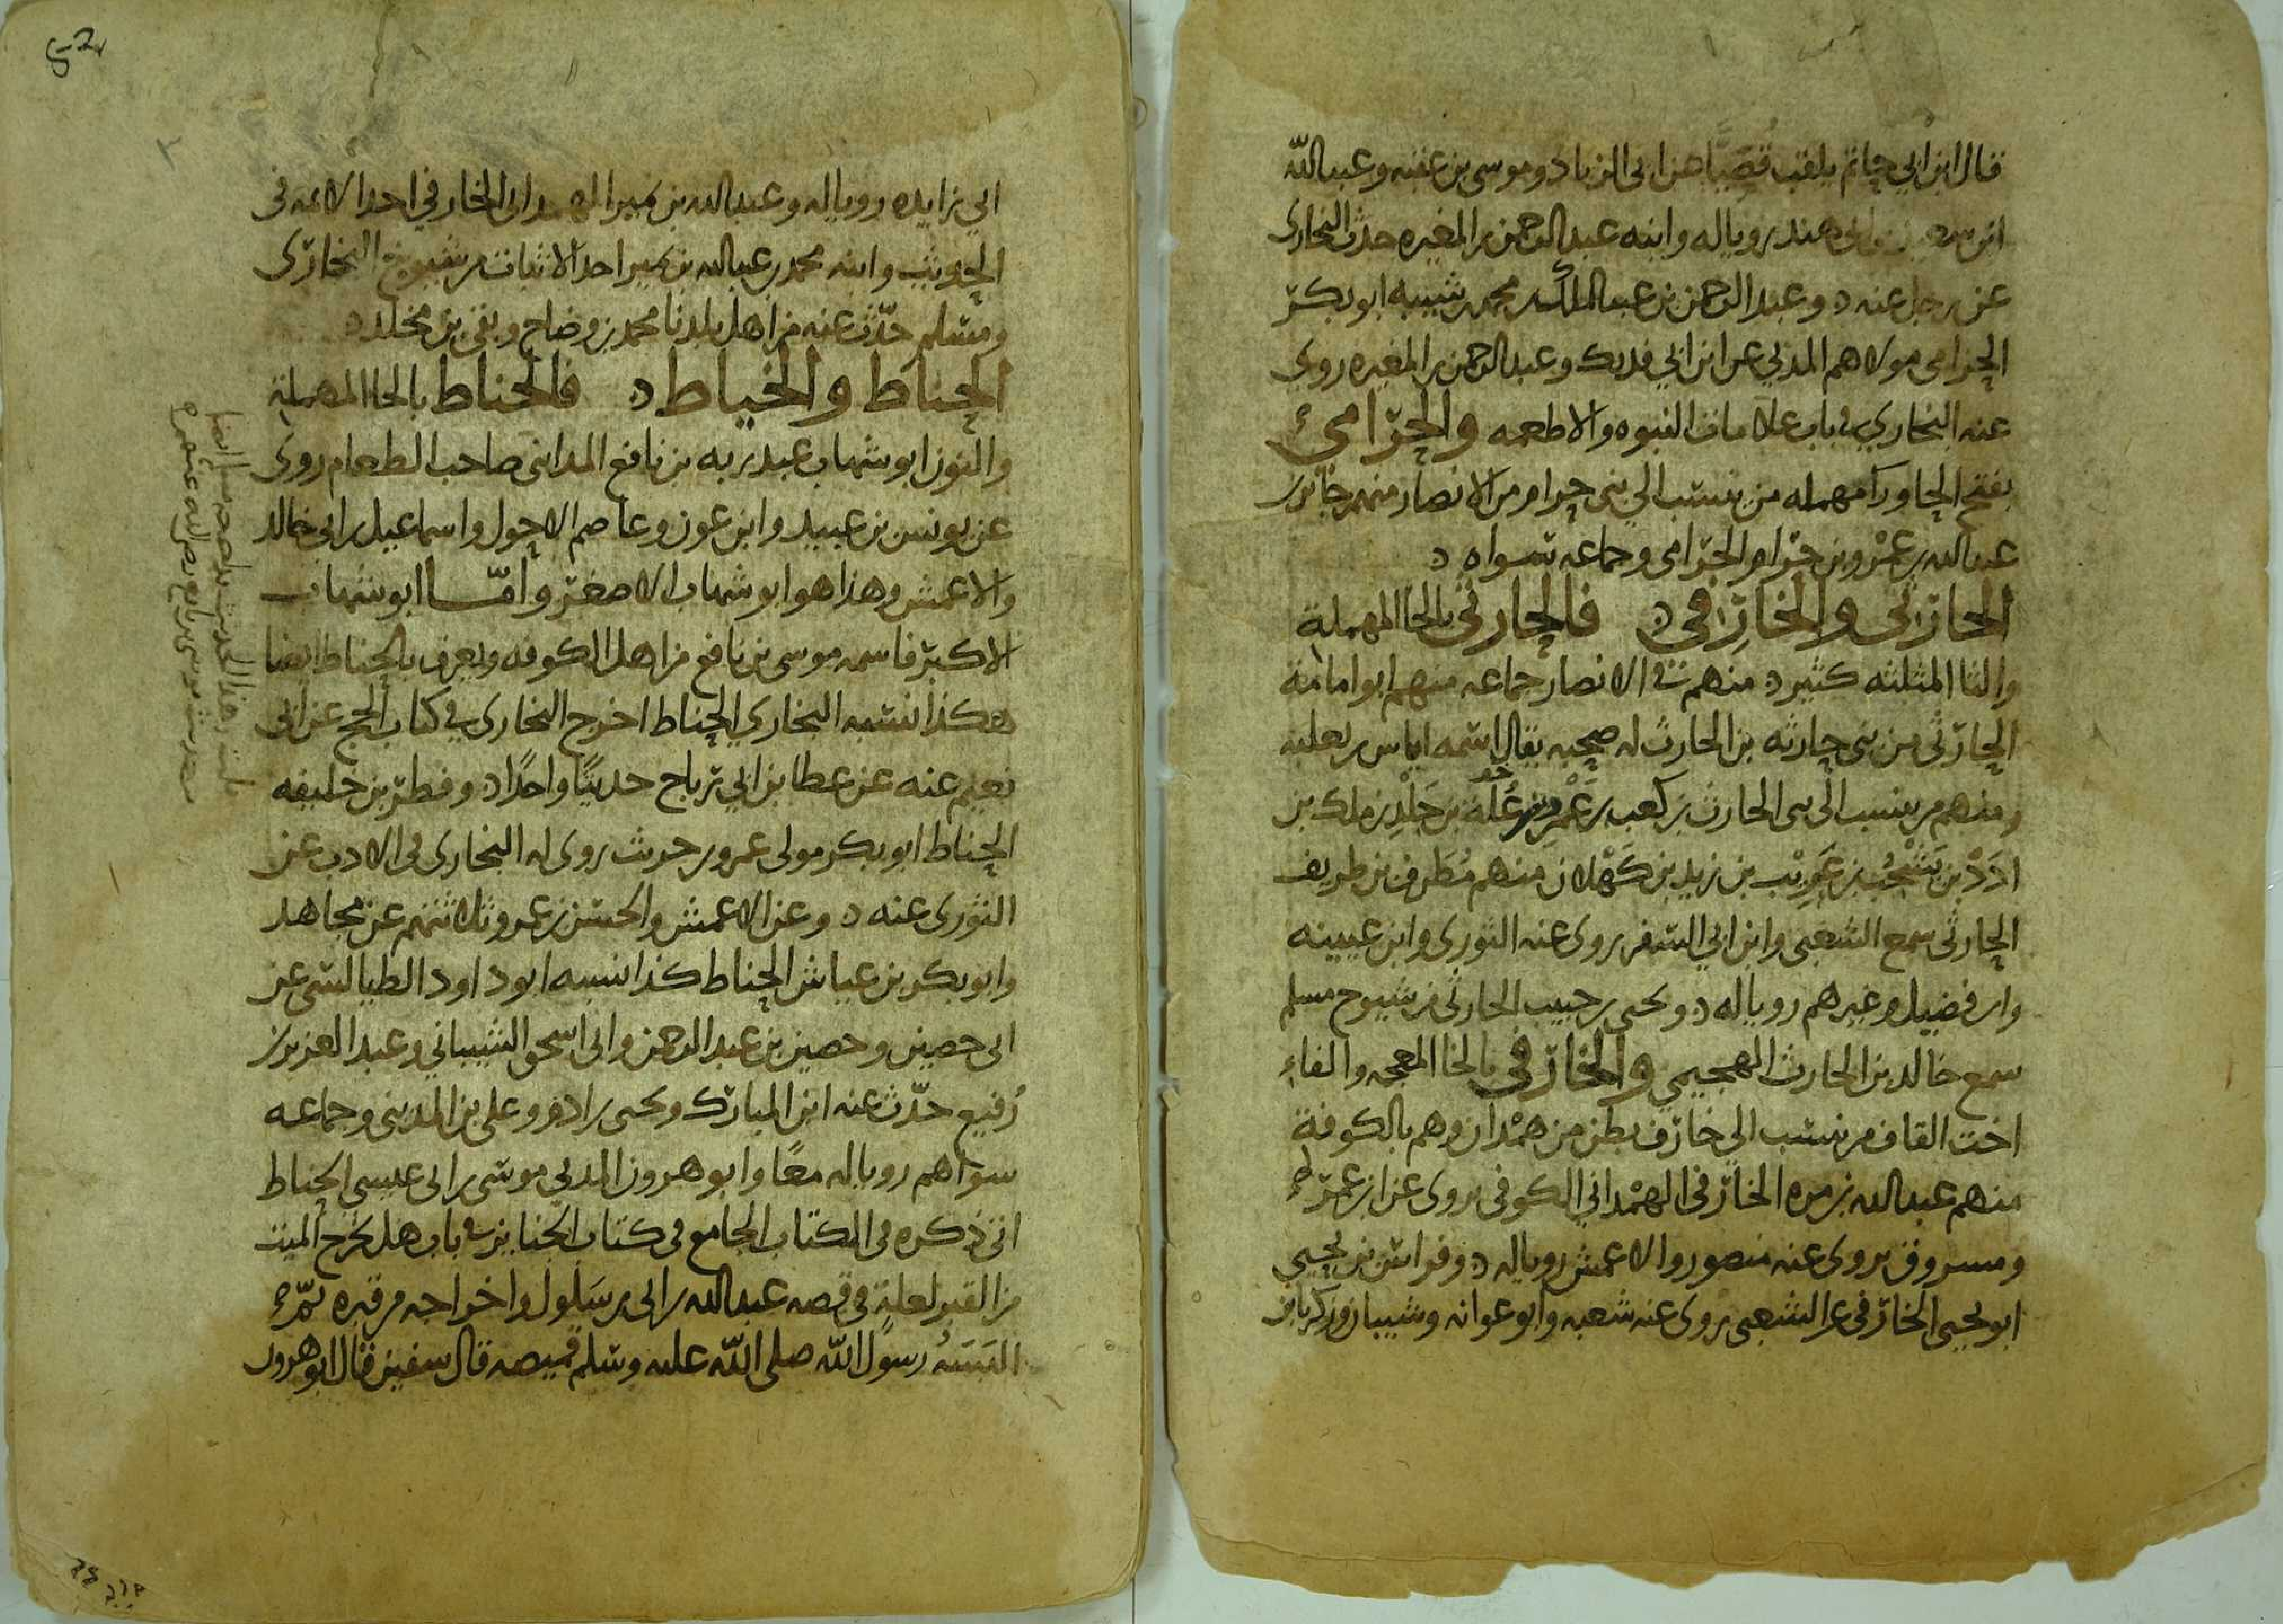 قال ابن ابي حاتم يلقب قصيا عن ابي الزناد وموسى بن عقبه وعبد الله
ابن سعيد بن ابي هند رويا له وابنه عبد الرحمن بن المغيره حدث البخاري
عن رجل عنه د وعبد الرحمن بن عبد الملك بن محمد بن شيبه ابو بكر
الحزامي مولاهم المدني عن ابن ابي فديك وعبد الرحمن بن المغيره روى
عنه البخاري في باب علامات النبوه والاطعمه والحرامي
بفتح الحا ورا مهمله من ينسب الي بني حرام من الانصار منهم جابر بن
عبد الله بن عمرو بن حرام الحرامي وجماعه سواه د
الحارثي والخارفي د فالحارثي بالحا المهملة
والثا المثلثه كثير د منهم في الانصار جماعه منهم ابو امامة
الحارثي من بني حارثه بن الحارث له صحبه يقال اسمه اياس بن ثعلبه
ومنهم من ينسب الى بني الحارث بن كعب بن عمرو بن علة بن جلد بن ملك بن
ادد بن يشجب بن عريب بن زيد بن كهلان منهم مطرف بن طريف
الحارثي سمع الشعبي وابن ابي السفر روى عنه الثوري وابن عيينه
وابن فضيل وغيرهم رويا له د ويحيى بن حبيب الحارثي من شيوخ مسلم
سمع خالد بن الحارث الهجيمي والخارفي بالخا المعجمه والفاء
اخت القاف من ينسب الي خارف بطن من همدان وهم بالكوفة
منهم عبد الله بن مره الخارفي الهمداني الكوفي يروى عن ابن عمر
ومسروق يروى عنه منصور والاعمش رويا له د وفراس بن يحيى
ابو يحيى الخارفي عن الشعبي روى عنه شعبه وابو عوانه وشيبان وزكريا بن
ابي زايده رويا له وعبد الله بن نمير الهمداني الخارفي احد الائمه في
الحديث وابنه محمد بن عبد الله بن نمير احد الاثبات من شيوخ البخاري
ومسلم حدث عنه من اهل بلدنا محمد بن وضاح وبقي بن مخلد د
الحناط والخياط د فالحناط بالحا المهملة
والنون ابو شهاب عبد ربه بن نافع المدايني صاحب الطعام روى
عن يونس بن عبيد وابن عون وعاصم الاحول واسماعيل بن ابي خالد
والاعمش وهذا هو ابو شهاب الاصغر واما ابو شهاب
الاكبر فاسمه موسى بن نافع من اهل الكوفه ويعرف بالحناط ايضا
هكذا نسبه البخاري الحناط اخرج البخاري في كتاب الحج عن ابي
نعيم عنه عن عطا بن ابي رباح حديثا واحدا د وفطر بن خليفه
الحناط ابو بكر مولى عمرو بن حريث روى له البخاري في الادب عن
الثوري عنه د وعن الاعمش والحسن بن عمرو ثلاثتهم عن مجاهد
وابو بكر بن عياش الحناط كذا نسبه ابو داود الطيالسي عن
ابي حصين وحصين بن عبد الرحمن وابي اسحق الشيباني وعبد العزيز بن
رفيع حدث عنه ابن المبارك ويحيى بن ادم وعلي بن المديني وجماعه
سواهم رويا له معا وابو هرون المدني موسى بن ابي عيسى الحناط
اتى ذكره في الكتاب الجامع في كتاب الجنايز في باب هل يخرج الميت
من القبر لعلة في قصه عبد الله بن ابي بن سلول واخراجه من قبره
البسه رسول الله صلى الله عليه وسلم قميصه قال سفين قال ابو هرون